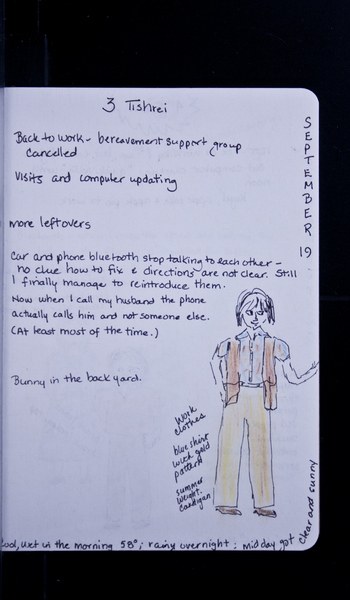 3 Tishrei
SEPTEMBER 19
Back to work - bereavement support group
cancelled
Visits and computer updating
more leftovers
Car and phone bluetooth stop talking to each other -
no clue how to fix & directions are not clear. Still
I finally manage to reintroduce them.
Now when I call my husband the phone
actually calls him and not someone else.
(At least most of the time.)
Bunny in the back yard.
Work
clothes
blue shirt
with gold
pattern
summer
weight
cardigan
cool, wet in the morning 58°; rainy overnight; mid day got clear and sunny